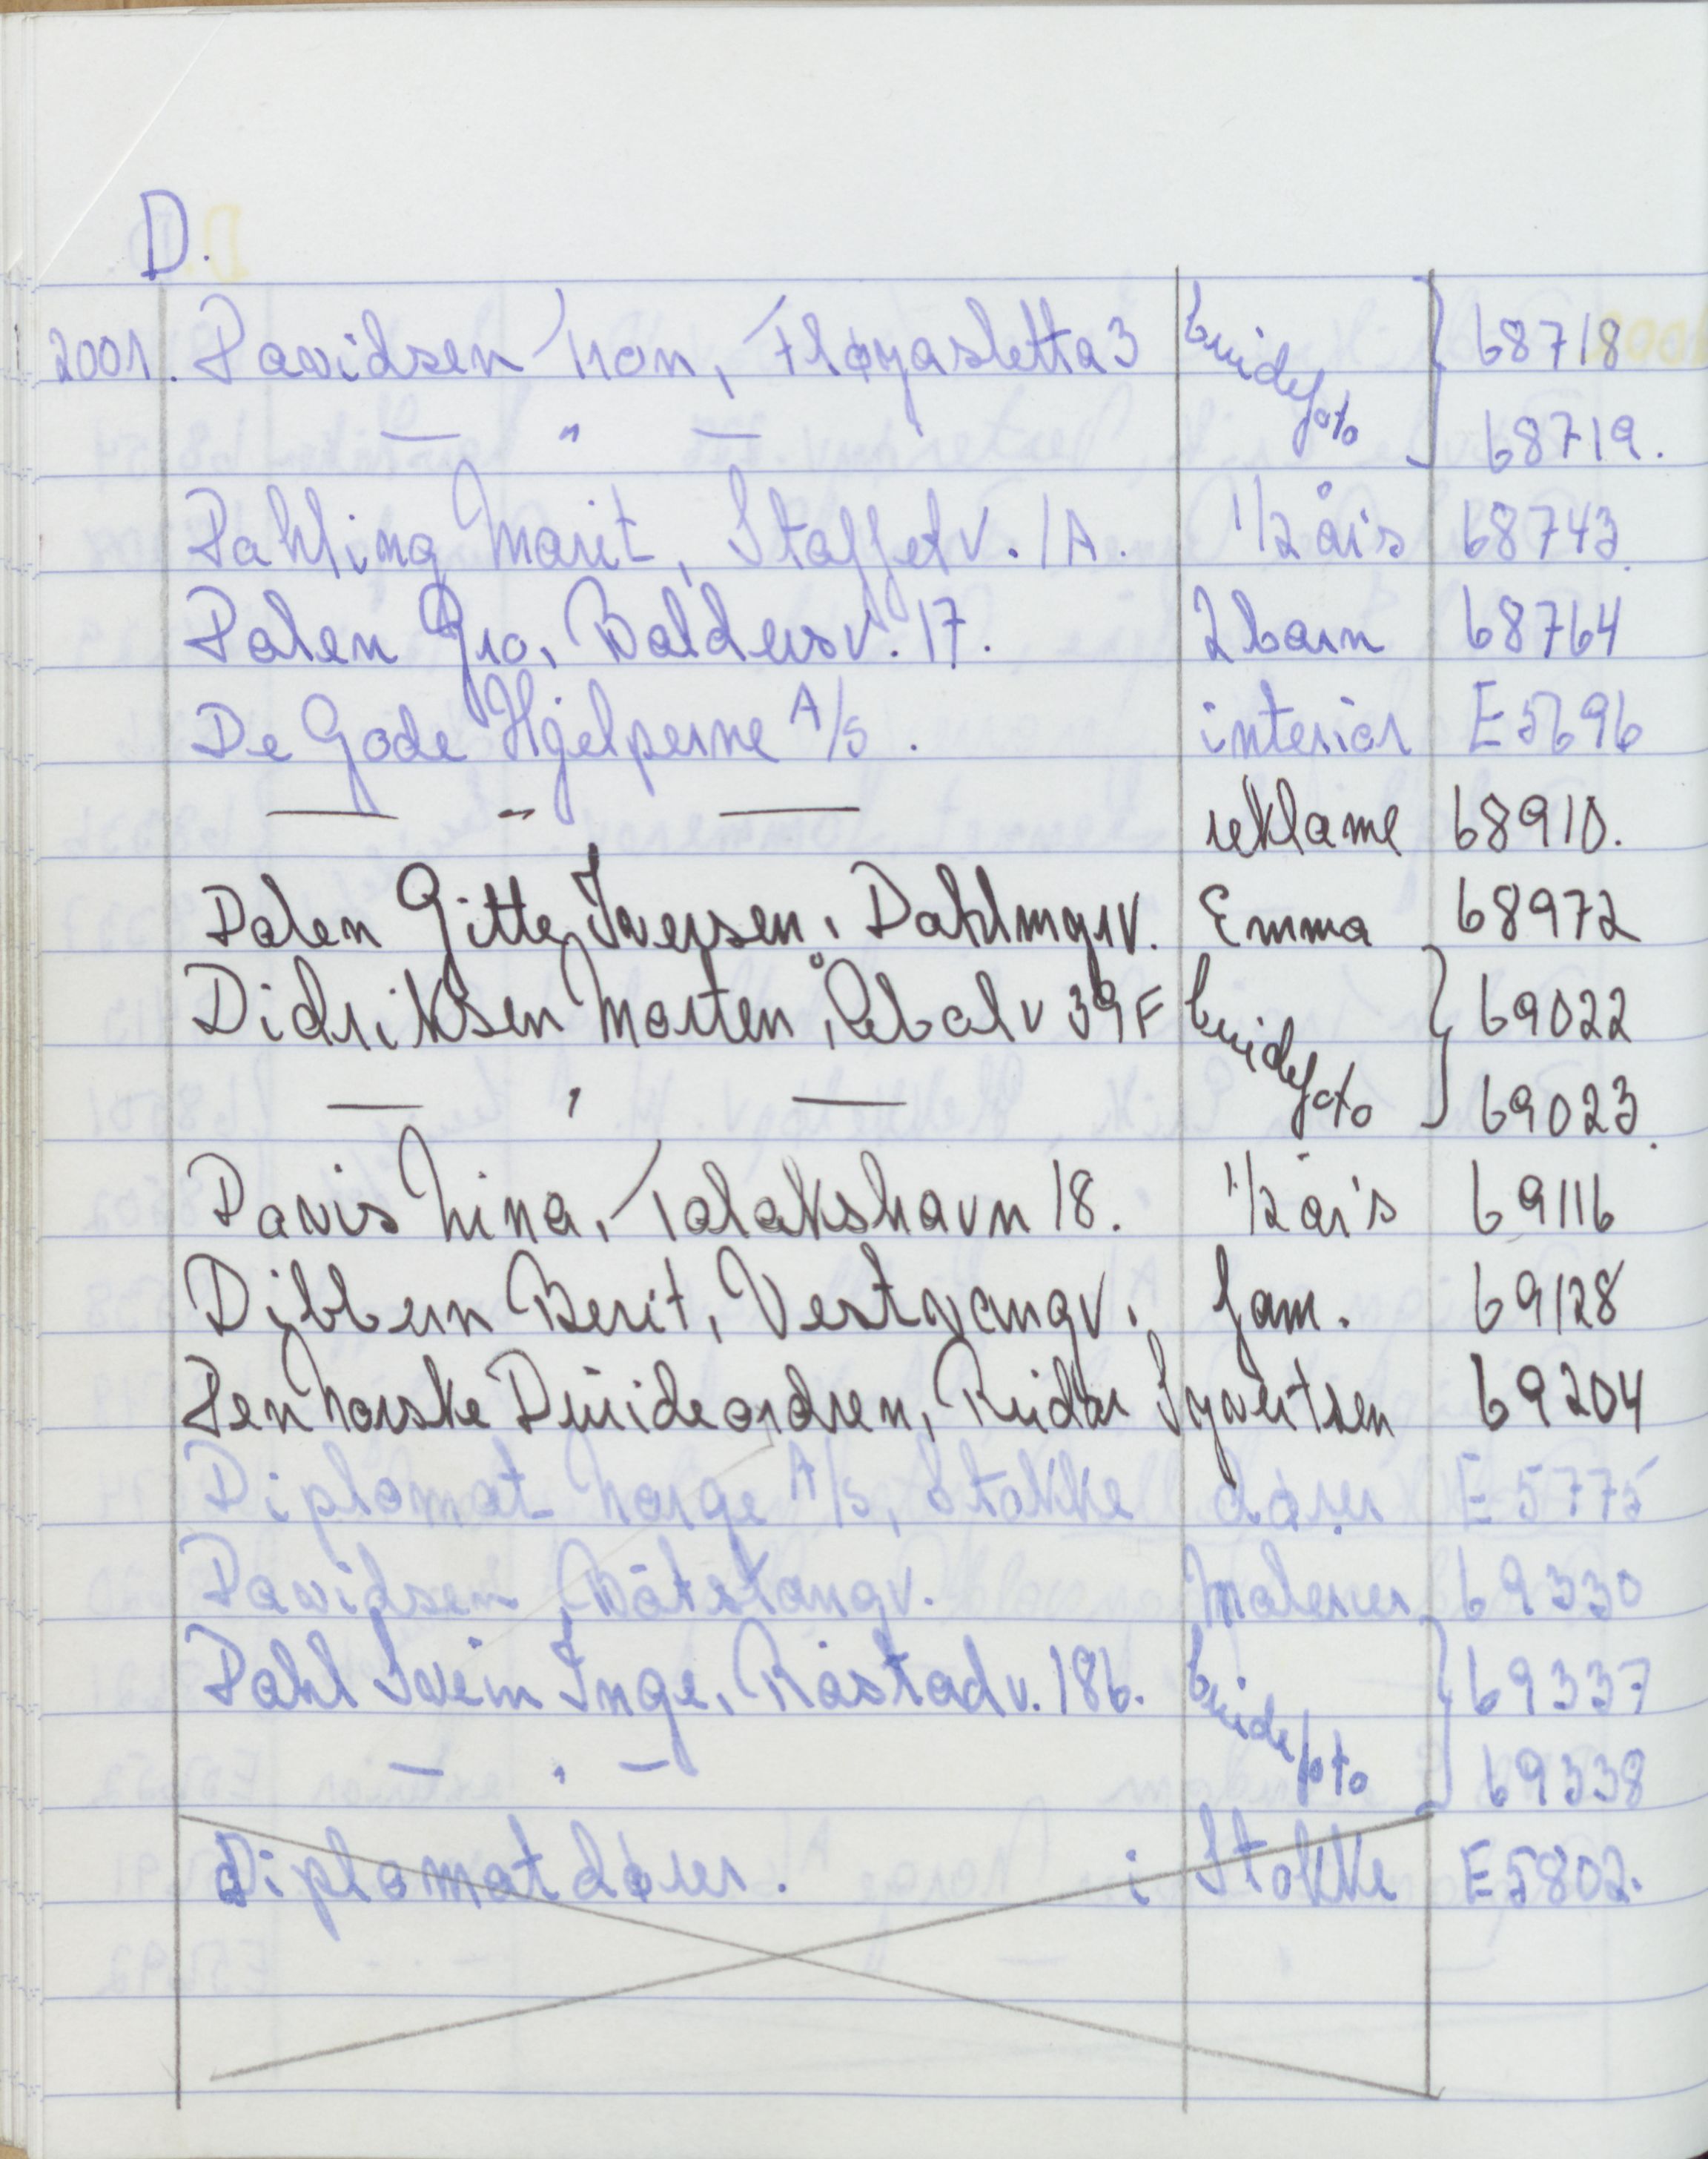 D.
2001. Davidsen Tron, Fløyasletta 3 brudefoto 68718
— " — 68719.
Dahling Marit, Staffelv. 1A. 1/2 års 68743.
Dalen Gro, Baldersv. 17. 2 barn 68764
De Gode Hjelperne A/S. interiør E5696
— " — reklame 68910.
Dalen Gitte Iversen, Dahlmgrv. Emma 68972
Didriksen Morten, Råbølv 39F brudefoto 69022
— " — 69023.
Davis Nina, Talakshavn 18. 1/2 års 69116
Dybbern Berit, Vestvangv. fam. 69128
Den Norske Druideordren, Reidar Syvertsen 69204
Diplomat Norge A/S, Stokke dører E5775
Davidsen, Båtstangv. Malerier 69330
Dahl Svein Inge, Råstadv. 186. brudefoto 69337
— " — 69338
Diplomatdører. i Stokke E5802.